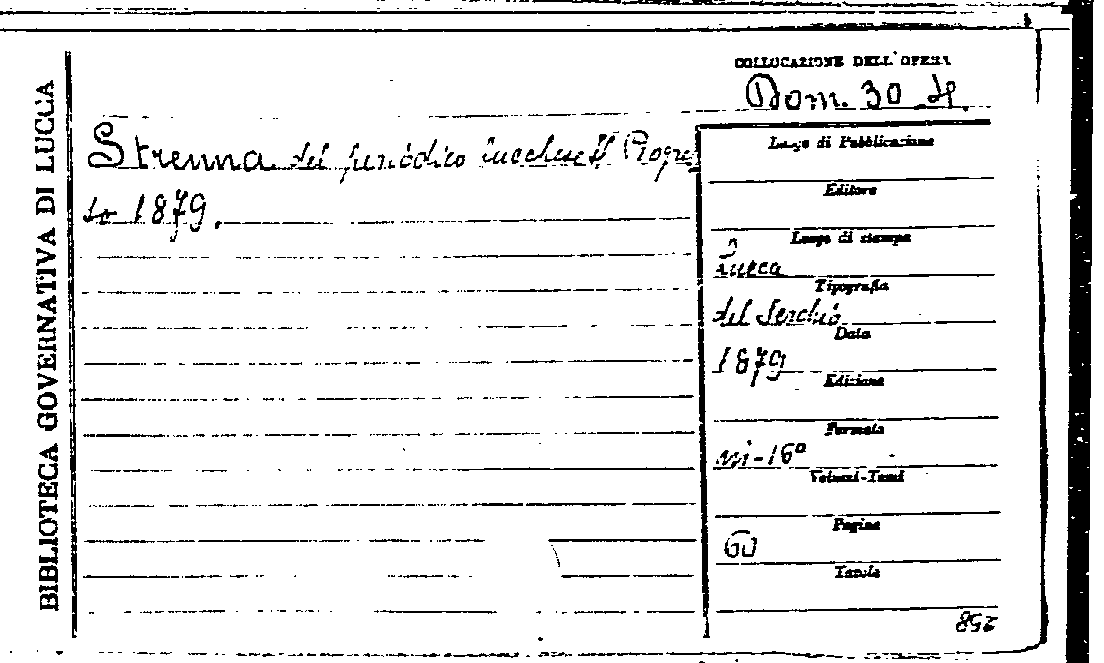 BIBLIOTECA GOVERNATIVA DI LUCCA
COLLOCAZIONE DELL'OPERA
Dom. 30 H.
Strenna del periodico lucchese Il Progres
so 1879.
Luogo di Pubblicazione
Editore
Luogo di stampa
Lucca
Tipografia
del Serchio
Data
1879
Edizione
Formato
in-16°
Volumi-Tomi
Pagine
60
Tavole
258